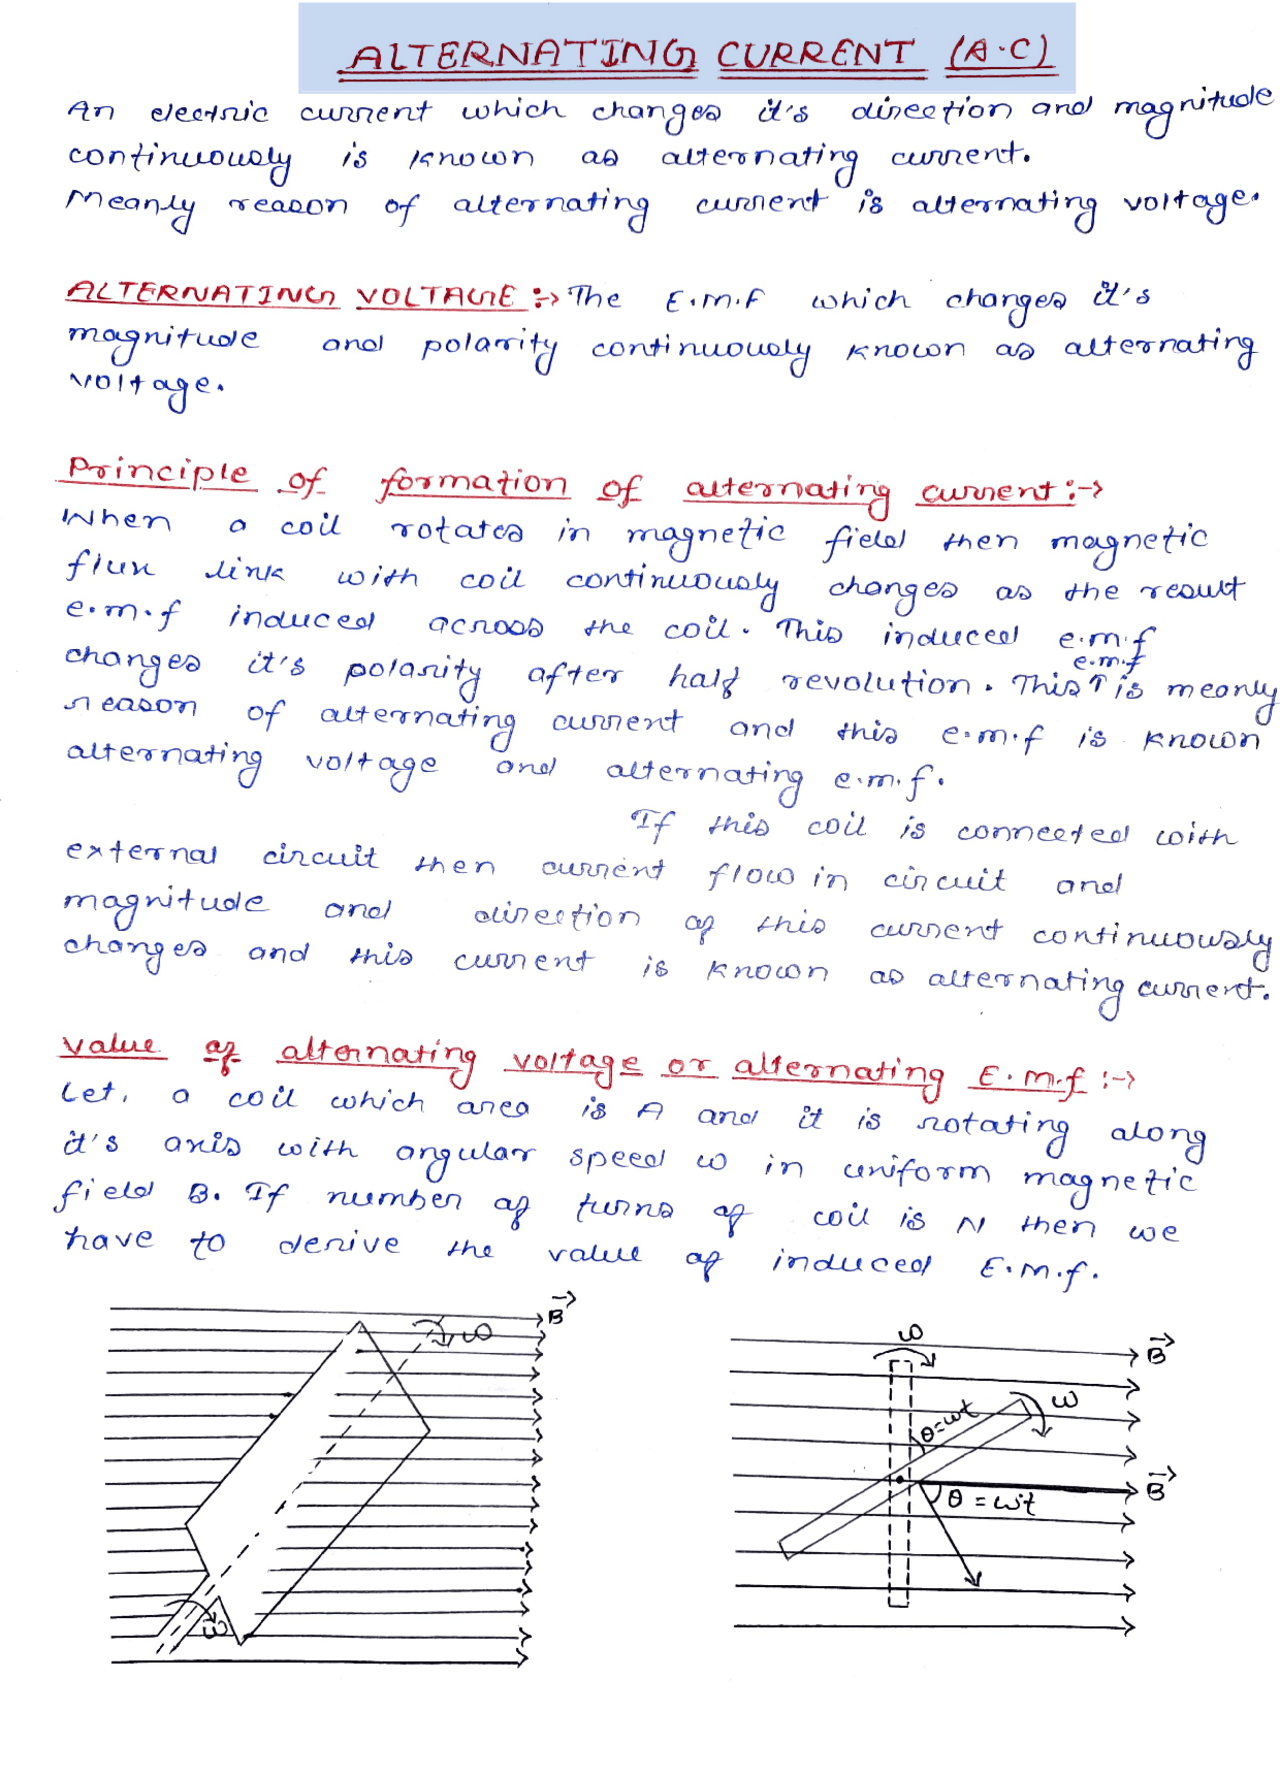 ALTERNATING CURRENT (A.C)
An electric current which changes it's direction and magnitude
continuously is known as alternating current.
Meanly reason of alternating current is alternating voltage.
ALTERNATING VOLTAGE :→ The E.m.f which changes it's
magnitude and polarity continuously known as alternating
voltage.
Principle of formation of alternating current :→
When a coil rotates in magnetic field then magnetic
flux link with coil continuously changes as the result
e.m.f induced across the coil. This induced e.m.f
changes it's polarity after half revolution. This ↑ is meanly
e.m.f
reason of alternating current and this e.m.f is known
alternating voltage and alternating e.m.f.
If this coil is connected with
external circuit then current flow in circuit and
magnitude and direction of this current continuously
changes and this current is known as alternating current.
Value of alternating voltage or alternating E.m.f :→
Let, a coil which area is A and it is rotating along
it's axis with angular speed ω in uniform magnetic
field B. If number of turns of coil is N then we
have to derive the value of induced E.m.f.
B⃗
ω
ω
ω
B⃗
ω
θ=ωt
B⃗
θ = ωt